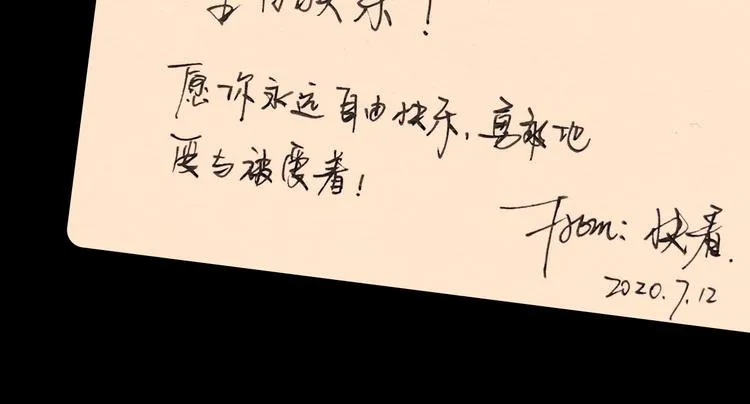 生日快乐!
愿你永远自由快乐,勇敢地
爱与被爱着!
From: 快看.
2020.7.12